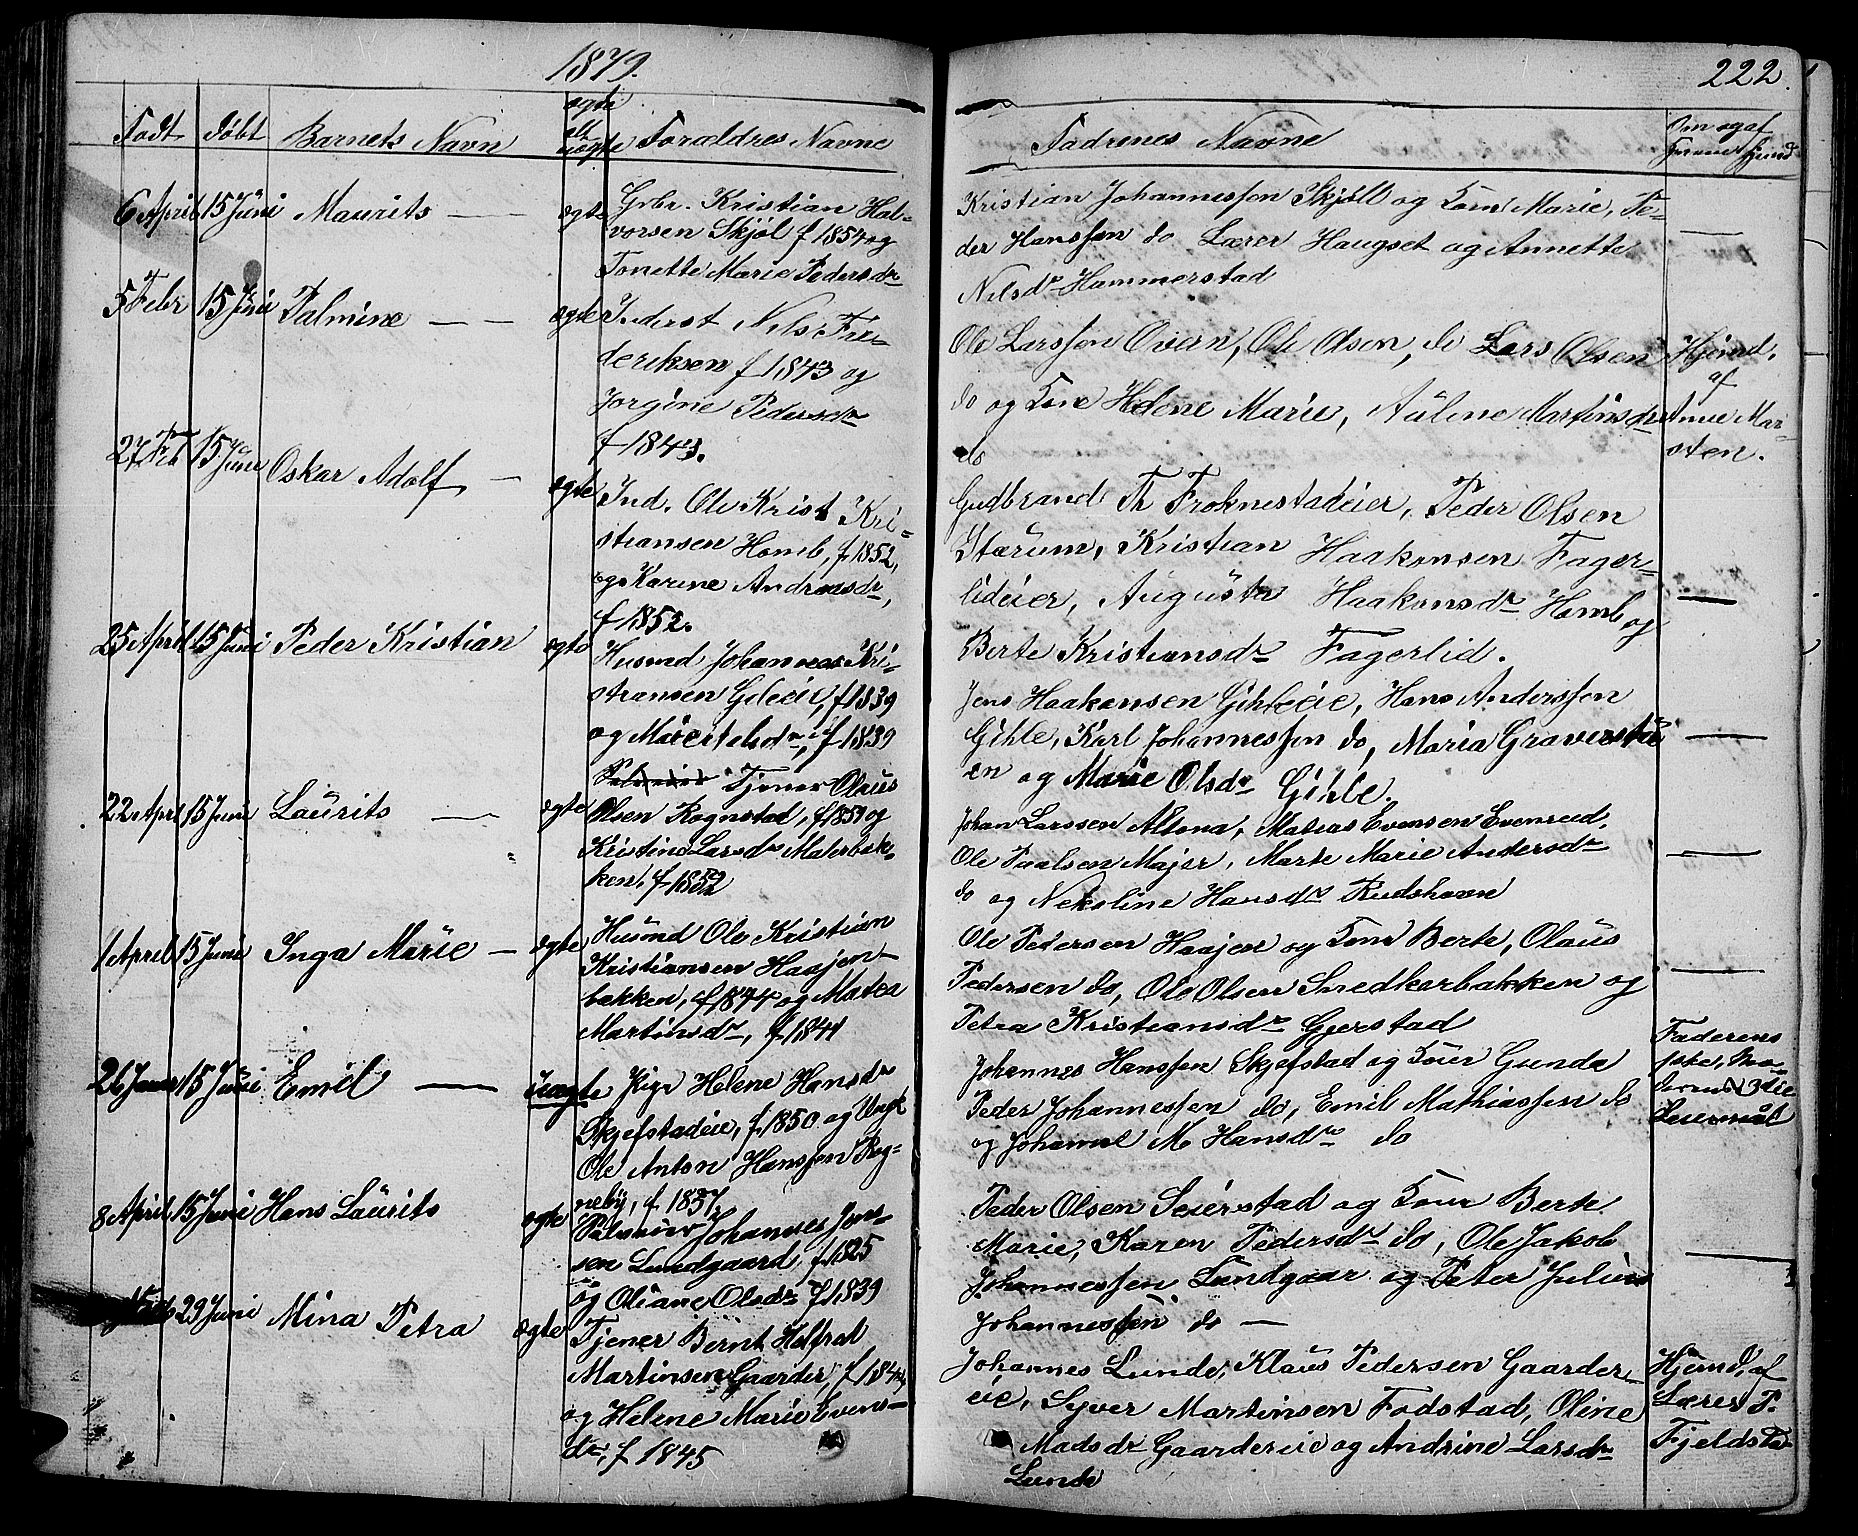 1879.
222.
Født døbt Barnets Navn ægte el. uægte Forældres Navne
Fadrenes Navne
Om og af hjemd
6 April 15 Juni Maurits — ægte Grbr. Kristian Hal-
vorsen Skjøl f 1854 og
Tonette Marie Pedersdr
Kristian Johannessen Skjøll og Kone Marie, Pe-
der Hanssen do Lærer Haugset og Annette
Nilsdr Hammerstad
5 Febr 15 Juni Palmine — — ægte Inderst Nils Fre-
deriksen f 1843 og
Jorgine Pedersdr
f 1843.
Ole Larssen Overn, Ole Olsen, do Lars Olsen
do og Kone Helene Marie, Auline Martinsdr
do
Hjemd.
af
Anne Mar-
sten.
27 Feb 15 Juni Oskar Adolf — ægte Ind. Ole Krist Kri-
stiansen Homb, f 1852,
og Karine Andreasdr,
f 1852.
Gudbrand Th Froknestadeier, Peder Olsen
Starum, Kristian Haakensen Fager-
lideier, Augusta Haakensdr Homb og
Berte Kristiansdr Fagerlid.
25 April 15 Juni Peder Kristian ægte Husmd Johannes Kri-
stiansen Gileeie, f 1839
og Marie Nilsdr, f 1839
Jens Haakensen Gihleeie, Hans Anderssen
Gihle, Karl Johannessen do, Maria Graverstu-
en og Marie Olsdr Gihle.
22 April 15 Juni Laurits — ægte Tjener Olaus
Olsen Rognstad, f 1851 og
Kristine Larsdr Malerbak-
ken, f 1852
Johan Larssen Altona, Matias Evensen Evenrud,
Ole Paalsen Majer, Marte Marie Andersdr
do og Nekoline Hansdr Rudshavn
1 April 15 Juni Inga Marie — ægte Husmd Ole Kristian
Kristiansen Haajen-
bakken, f 1844 og Matea
Martinsdr, f 1841
Ole Pedersen Haajen og Kone Berte, Olaus
Pedersen do, Ole Olsen Smedkarbakken og
Petra Kristiansdr Gjerstad
26 Janr 15 Juni Emil — uægte Pige Helene Hansdr
Skjefstadeie, f 1850 og Ungk
Ole Anton Hanssen Rog-
neby, f. 1837.
Johannes Hanssen Skjefstad og Kone Gunda
Peder Johannessen do, Emil Mathiassen do
og Johanne M Hansdr do
Faderens
3die
Leiermaal
8 April 15 Juni Hans Laurits ægte Johannes Jens-
sen Lundgaard, f 1825
og Oliane Olsdr f 1839
Peder Olsen Seierstad og Kone Berte
Marie, Karen Pedersdr do, Ole Jakob
Johannessen Lundgaar og Peter Julius
Johannessen do —
29 Juni Mina Petra ægte Tjener Bernt Helfred
Martinsen Gaarder, f 1844,
og Helene Marie Evens-
dr, f 1845
Johannes Lunde, Klaus Pedersen Gaarder-
eie, Syver Martinsen Fodstad, Oline
Madsdr Gaardereie og Andrine Larsdr
Lunde
Hjemd. af
Lærer P.
Fjeldsta